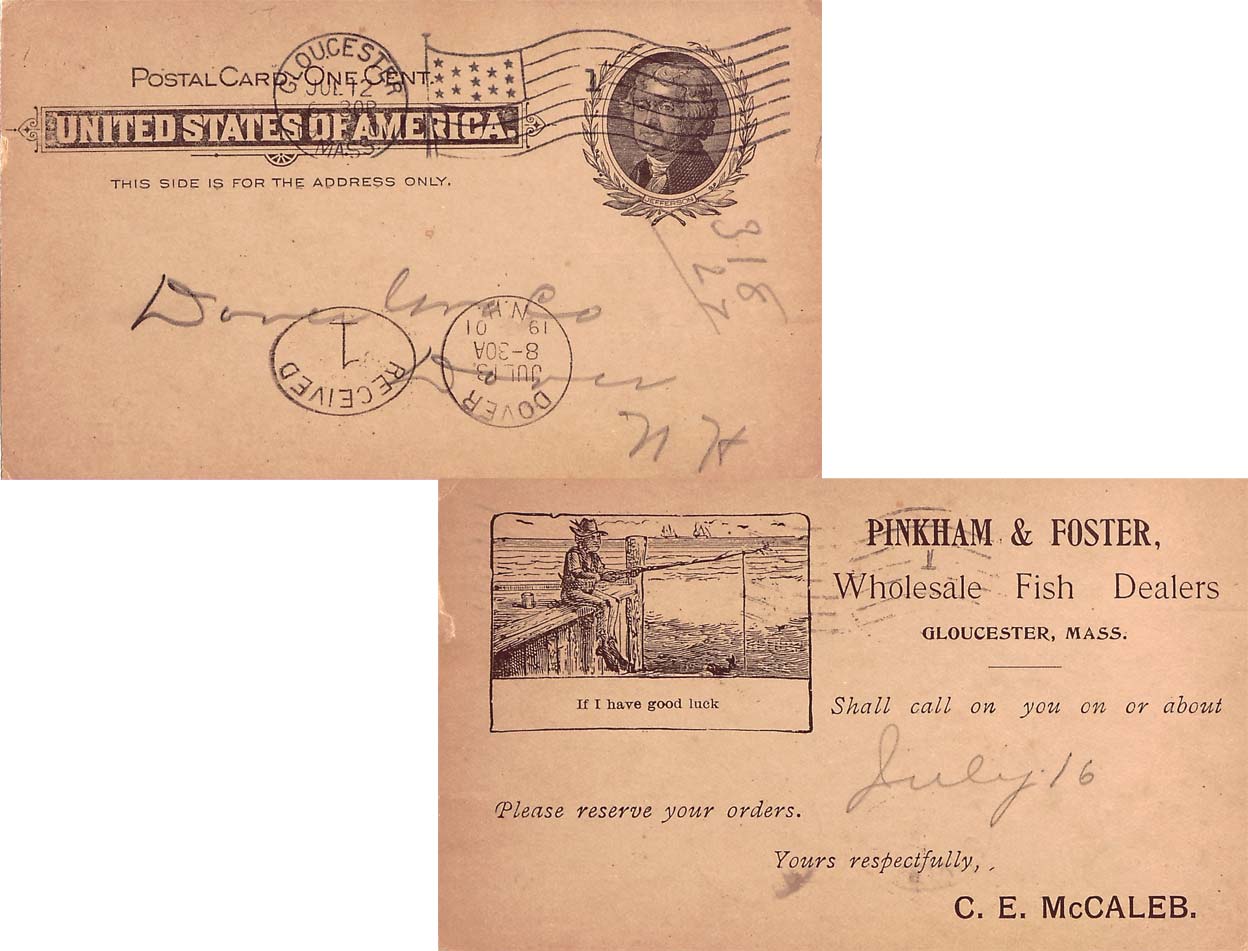 POSTAL CARD-ONE CENT.
UNITED STATES OF AMERICA.
THIS SIDE IS FOR THE ADDRESS ONLY.
GLOUCESTER
JUL 12
30P
MASS
1
JEFFERSON
316
27
Dover Co
Dover
N H
RECEIVED
1
DOVER
JUL 13
8-30A
19 01
N.H.
PINKHAM & FOSTER,
Wholesale Fish Dealers
GLOUCESTER, MASS.
If I have good luck
Shall call on you on or about
July 16
Please reserve your orders.
Yours respectfully,
C. E. McCALEB.